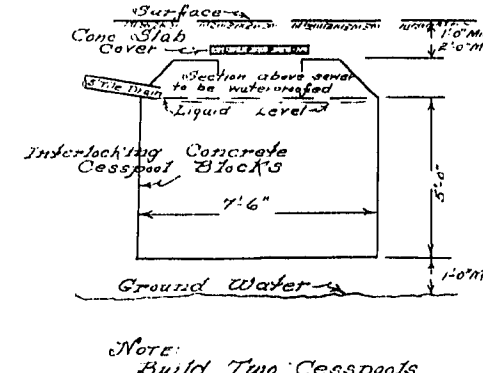 Surface
Conc Slab
Cover
1'-0" M
2'-0" M
Section above sewer
to be waterproofed
5" Tile Drain
Liquid Level
Interlocking Concrete
Cesspool Blocks
7'-6"
5'-0"
1'-0" M
Ground Water
NOTE:
Build Two Cesspools